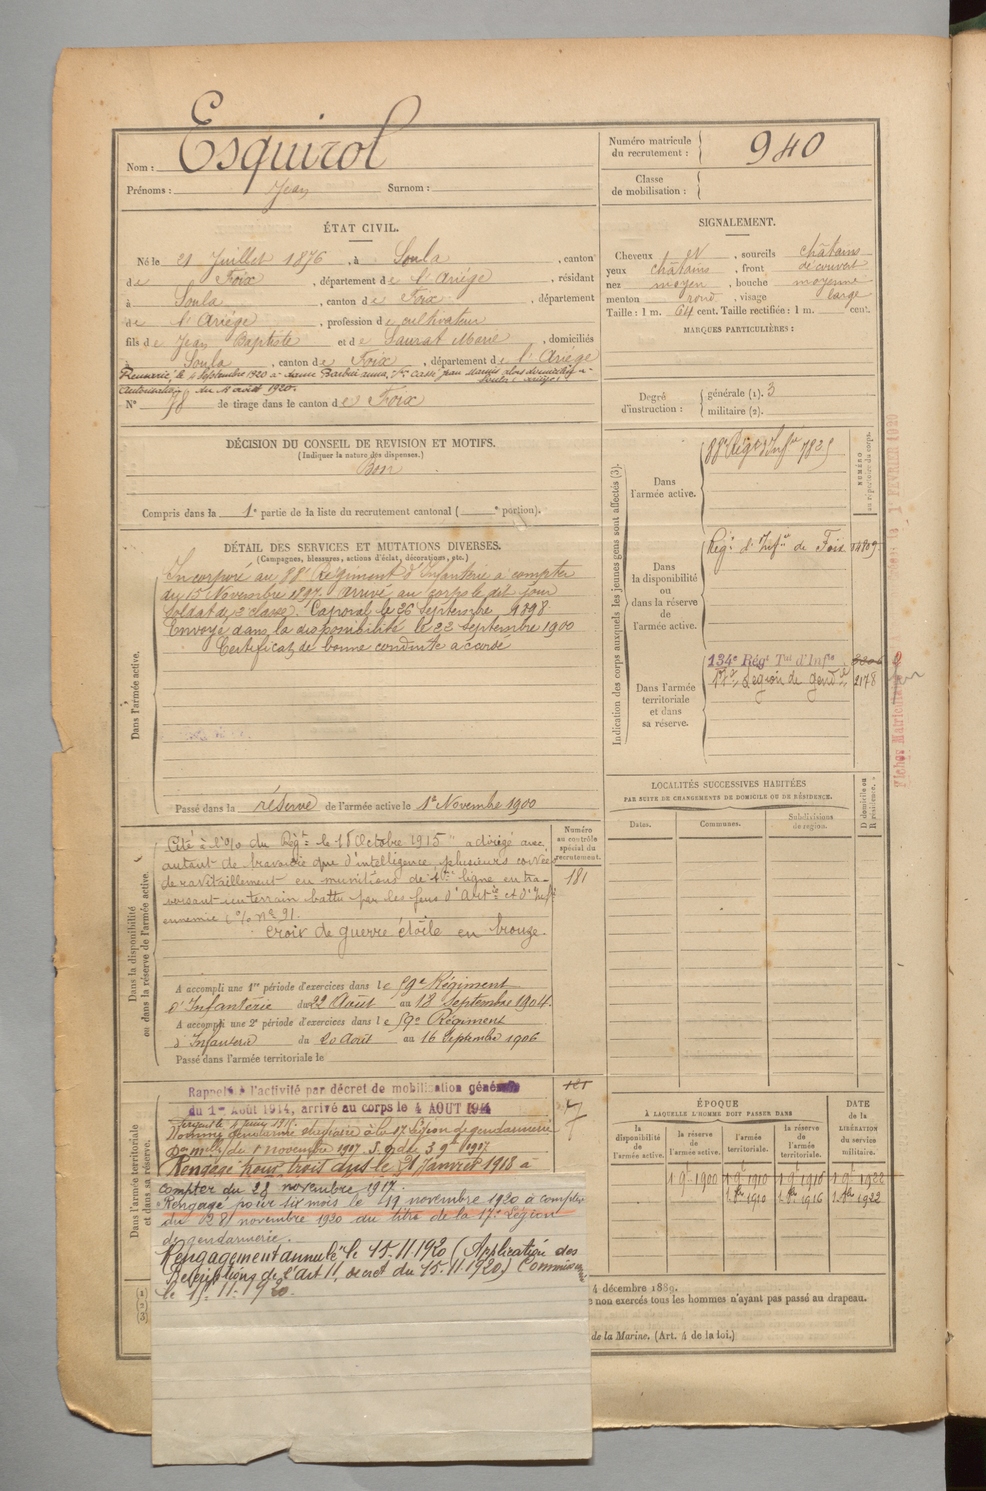 Nom : Esquirol
Prénoms : Jean Surnom :
Numéro matricule du recrutement : 940
Classe de mobilisation :
ÉTAT CIVIL.
Né le 21 Juillet 1876, à Soula, canton
de Foix, département de l'Ariège, résidant
à Soula, canton de Foix, département
de l'Ariège, profession de cultivateur
fils de Jean Baptiste et de Saurat Marie, domiciliés
à Soula, canton de Foix, département de l'Ariège
autorisation du 18 août 1920.
N° 98 de tirage dans le canton de Foix
SIGNALEMENT.
Cheveux et, sourcils châtains
yeux châtains, front découvert
nez moyen, bouche moyenne
menton rond, visage large
Taille : 1 m. 64 cent. Taille rectifiée : 1 m. cent.
MARQUES PARTICULIÈRES :
Degré d'instruction : générale (1). 3
militaire (2).
DÉCISION DU CONSEIL DE REVISION ET MOTIFS.
(Indiquer la nature des dispenses.)
Bon
Compris dans la 1e partie de la liste du recrutement cantonal ( e portion).
DÉTAIL DES SERVICES ET MUTATIONS DIVERSES.
(Campagnes, blessures, actions d'éclat, décorations, etc.)
Dans l'armée active.
Incorporé au 88e Régiment d'Infanterie à compter
du 15 Novembre 1897. arrivé au corps le dit jour
Soldat de 2e classe. Caporal le 26 Septembre 1898
Envoyé dans la disponibilité le 22 Septembre 1900
Certificat de bonne conduite accordé
Passé dans la réserve de l'armée active le 1er Novembre 1900
Indication des corps auxquels les jeunes gens sont affectés (3).
NUMÉRO au répertoire du corps.
Dans l'armée active.
88e Rég. d'Inf.ie 7825
Dans la disponibilité ou dans la réserve de l'armée active.
Rég.t d'Inf.ie de Foix
Dans l'armée territoriale et dans sa réserve.
134e Régt Tal d'Infie
17e Légion de gend.ie 2178
LOCALITÉS SUCCESSIVES HABITÉES
PAR SUITE DE CHANGEMENTS DE DOMICILE OU DE RÉSIDENCE.
Dates. Communes. Subdivisions de région.
D domicile ou R résidence.
Dans la disponibilité ou dans la réserve de l'armée active.
Numéro au contrôle spécial du recrutement.
181
Cité à l'o/o du Régt le 18 Octobre 1915 "a dirigé avec
autant de bravoure que d'intelligence plusieurs corvées
de ravitaillement en munitions de 1ère ligne en tra-
versant un terrain battu par les feux d'Artie et d'Infie
ennemie o/o N° 91.
Croix de guerre étoile en bronze.
A accompli une 1re période d'exercices dans le 59e Régiment
d'Infanterie du 22 Août au 18 Septembre 1904.
A accompli une 2e période d'exercices dans le 59e Régiment
d'Infanterie du 20 Août au 16 Septembre 1906
Passé dans l'armée territoriale le
Dans l'armée territoriale et dans sa réserve.
Rappelé à l'activité par décret de mobilisation générale
du 1er Août 1914, arrivé au corps le 4 AOUT 1914
Nommé gendarme auxiliaire à la 17e Légion de gendarmerie
Rengagé pour trois ans le 21 Janvier 1918 à
compter du 28 novembre 1917.
Rengagé pour six mois le 19 novembre 1920 à compter
du 28 novembre 1920 au titre de la 17e Légion
de gendarmerie.
Rengagement annulé le 15.11.1920 (Application des
de l'Art 11, décret du 15.11.1920)
le 15.11.1920.
ÉPOQUE
À LAQUELLE L'HOMME DOIT PASSER DANS
la disponibilité de l'armée active.
la réserve de l'armée active.
l'armée territoriale.
la réserve de l'armée territoriale.
DATE de la LIBÉRATION du service militaire.
4 décembre 1889.
e non exercés tous les hommes n'ayant pas passé au drapeau.
de la Marine. (Art. 4 de la loi.)